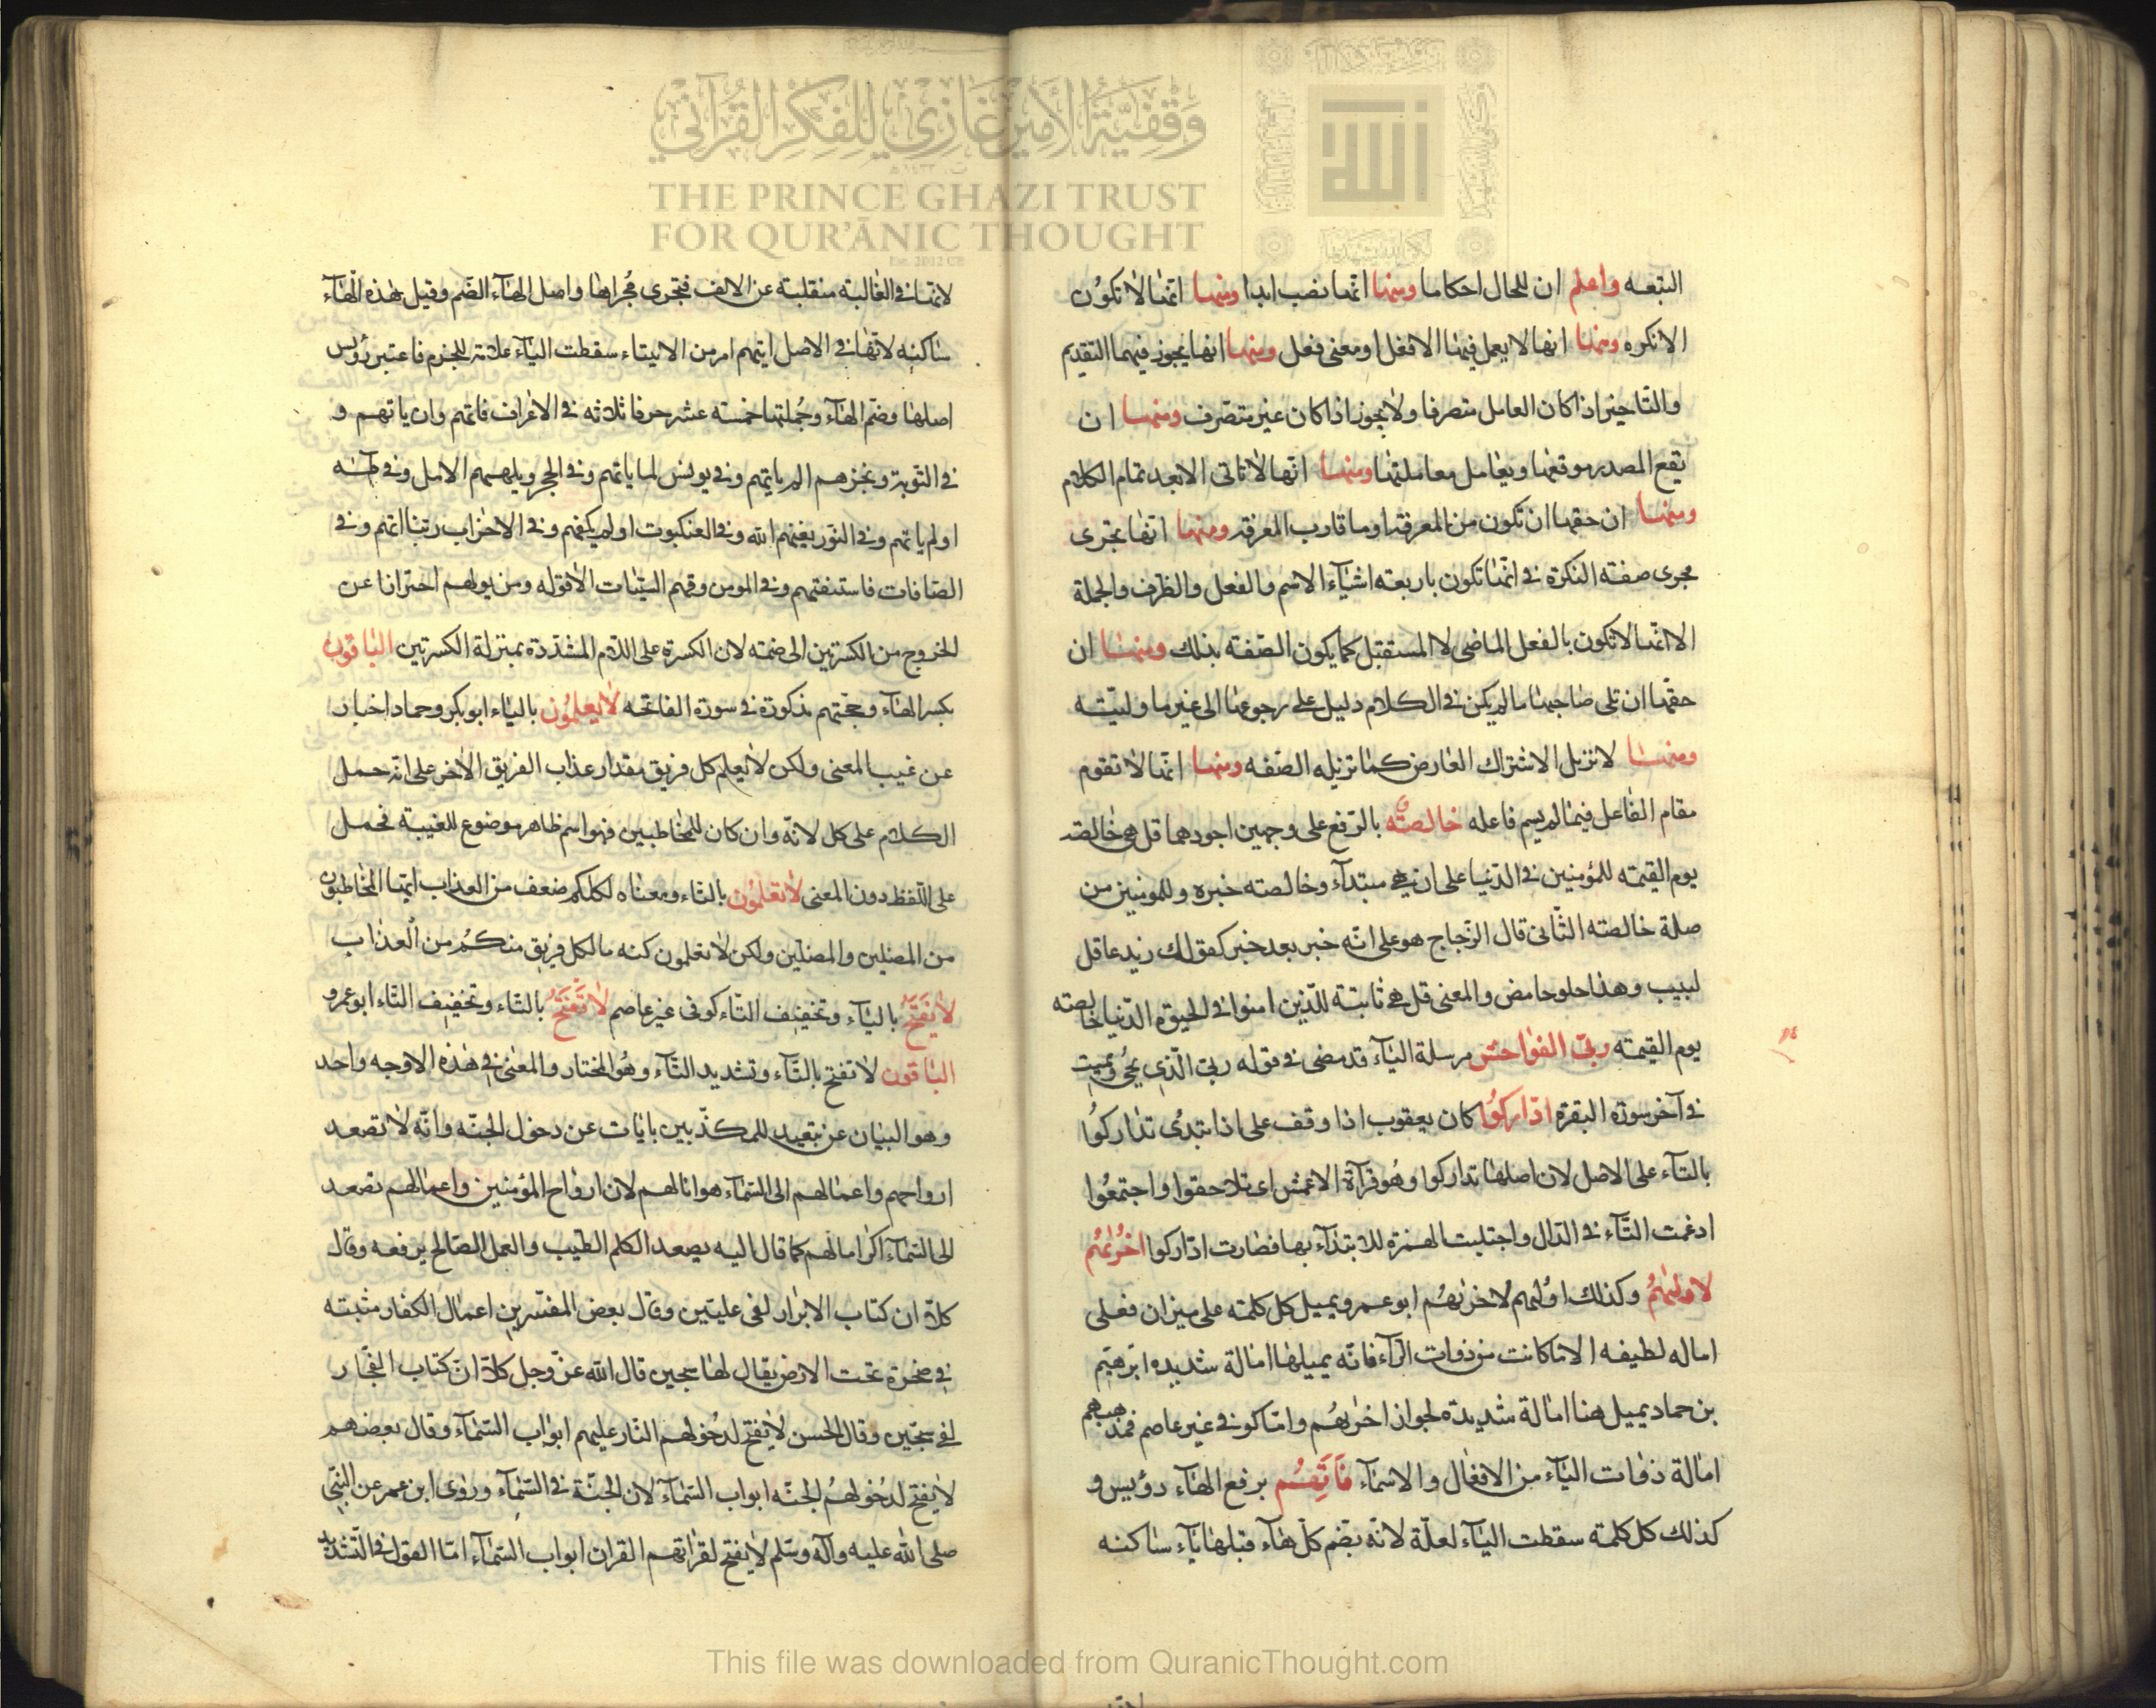 وقفية الأمير غازي للفكر القرآني
THE PRINCE GHAZI TRUST
FOR QUR'ĀNIC THOUGHT
Est. 2012 CE
التبعه واعلم ان للحال احكاما ومنها انها نصب ابدا ومنها انها لا تكون
الا نكره ومنها انها لا يعمل فيها الا فعل او معنى فعل ومنها انها يجوز فيهما التقديم
والتاخير اذا كان العامل متصرفا ولا يجوز اذا كان غير متصرف ومنها ان
يقع المصدر موقعها ويعامل معاملتها ومنها انها لا تاتى الا بعد تمام الكلام
ومنها ان حقها ان تكون من المعرفة او ما قارب المعرفة ومنها انها تجرى
مجرى صفة النكرة فى انها تكون باربعة اشياء الاسم والفعل والظرف والجملة
الا انها لا تكون بالفعل الماضى لا المستقبل كما يكون الصفة بذلك ومنها ان
حقها ان تلى صاحبها ما لم يكن فى الكلام دليل على رجوعها الى غير ما وليته
ومنها لا تزيل الاشتراك العارض كما تزيله الصفه ومنها انها لا تقوم
مقام الفاعل فيما لم يسم فاعله خالصة بالرفع على وجهين اجودهما قل هى خالصة
يوم القيمة للمؤمنين فى الدنيا على ان هى مبتداء وخالصته خبره وللمومنين من
صلة خالصته الثانى قال الزجاج هو على انه خبر بعد خبر كقولك زيد عاقل
لبيب وهذا حلو حامض والمعنى قل هى ثابتة للذين امنوا فى الحيوة الدنيا خالصته
يوم القيمته ربى الفواحش مرسلة الياء قد مضى فى قوله ربى الذى يحى ويميت
فى آخر سورة البقرة ادّاركوا كان يعقوب اذا وقف على اذا يبتدى تداركوا
بالتاء على الاصل لان اصلها تداركوا وهو قرآة الاعمش اى تلاحقوا واجتمعوا
ادغمت التاء فى الدال واجتلبت الهمزة للابتداء بها فصارت ادّاركوا اخرٰيهم
لاولٰيهم وكذلك اوليهم لاخرٰيهم ابو عمرو يميل كل كلمته على ميزان فعلى
اماله لطيفه الا ما كانت من ذوات الراء فانه يميلها امالة شديده ابرٰهيم
بن حماد يميل هنا امالة شديدة لجوار اخرٰيهم واما كوفى غير عاصم فمذهبهم
امالة ذوات الياء من الافعال والاسماء فآتهُم برفع الهاء رويس و
كذلك كل كلمته سقطت الياء لعلّة لانه يضم كل هاء قبلها ياء ساكنه
لانها فى الغالبة منقلبة عن الالف فتجرى مجراها واصل الهاء الضم وقيل هذه الهاء
ساكنه لانها فى الاصل ايتهم امر من الايتاء سقطت الياء علامة للجزم فاعتبر رويس
اصلها وضم الهاء وجملتها خمسة عشر حرفا ثلاثه فى الاعراف فاتهم وان ياتهم و
فى التوبة ويخزهم الم ياتهم وفى يونس لما ياتهم وفى الحجر ويلههم الامل وفى طه
اولم ياتهم وفى النور يغنهم الله وفى العنكبوت اولم يكفهم وفى الاحزاب ربنا اتهم وفى
الصافات فاستفتهم وفى المومن وقهم السيئات الا قوله ومن يولهم احترازا عن
الخروج من الكسرتين الى ضمته لان الكسرة على اللام المشددة بمنزلة الكسرتين الباقون
بكسر الهاء وحجتهم مذكورة فى سورة الفاتحه لا يعلمون بالياء ابو بكر وحماد اخبار
عن غيب المعنى ولكن لا يعلم كل فريق مقدار عذاب الفريق الاخر على انه حمل
الكلام على كل لانه وان كان للمخاطبين فهو اسم ظاهر موضوع للغيبة فحمل
على اللفظ دون المعنى لا تعلمون بالتاء ومعناه لكلكم ضعف من العذاب ايها المخاطبون
من المضلين والمضلين ولكن لا تعلمون كنه ما لكل فريق منكم من العذاب
لا يُفتَح بالياء وتخفيف التاء كوفى غير عاصم لا تُفتَح بالتاء وتخفيف التاء ابو عمرو
الباقون لا تفتح بالتاء وتشديد التاء وهو المختار والمعنى فى هذه الاوجه واحد
وهو البيان عن تبعيد للمكذبين بايات عن دخول الجنة وانه لا تصعد
ارواحهم واعمالهم الى السماء هوانا لهم لان ارواح المؤمنين واعمالهم تصعد
الى السماء اكراما لهم كما قال اليه يصعد الكلم الطيب والعمل الصالح يرفعه وقال
كلا ان كتاب الابرار لفى عليين وقال بعض المفسرين اعمال الكفار مثبته
فى صخرة تحت الارض يقال لها سجين قال الله عز وجل كلا ان كتاب الفجار
لفى سجين وقال الحسن لا يفتح لدخولهم النار عليهم ابواب السماء وقال بعضهم
لا يفتح لدخولهم الجنة ابواب السماء لان الجنة فى السماء وروى ابن عمر عن النبى
صلى الله عليه وآله وسلم لا يفتح لقراتهم القران ابواب السماء اما القول فى التشديد
This file was downloaded from QuranicThought.com